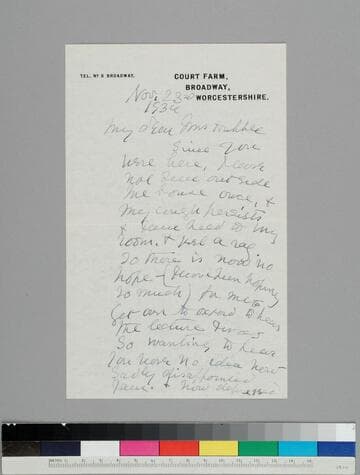 TEL. Nº 8 BROADWAY.
COURT FARM,
BROADWAY,
WORCESTERSHIRE.
Nov. 23rd
193
My dear
Since you
were here, I have
not been outside
the house once, &
my cough persists
& I am tied to my
room, & just a rag
So there is now no
hope - (I have been hoping
so much) for me to
get over to oxford to hear
the lecture I was
so wanting to hear
You have no idea how
sadly disappointed
I am. & how depressed